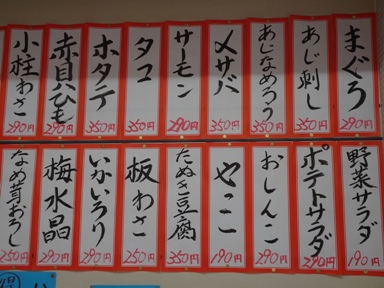 まぐろ
290円
あじ刺し
350円
あじなめろう
350円
〆サバ
350円
サーモン
290円
タコ
350円
ホタテ
350円
赤貝ひも
290円
小柱わさ
290円
野菜サラダ
190円
ポテトサラダ
290円
おしんこ
250円
やっこ
190円
たぬき豆腐
350円
板わさ
250円
いかいろり
290円
梅水晶
290円
なめ茸おろし
250円